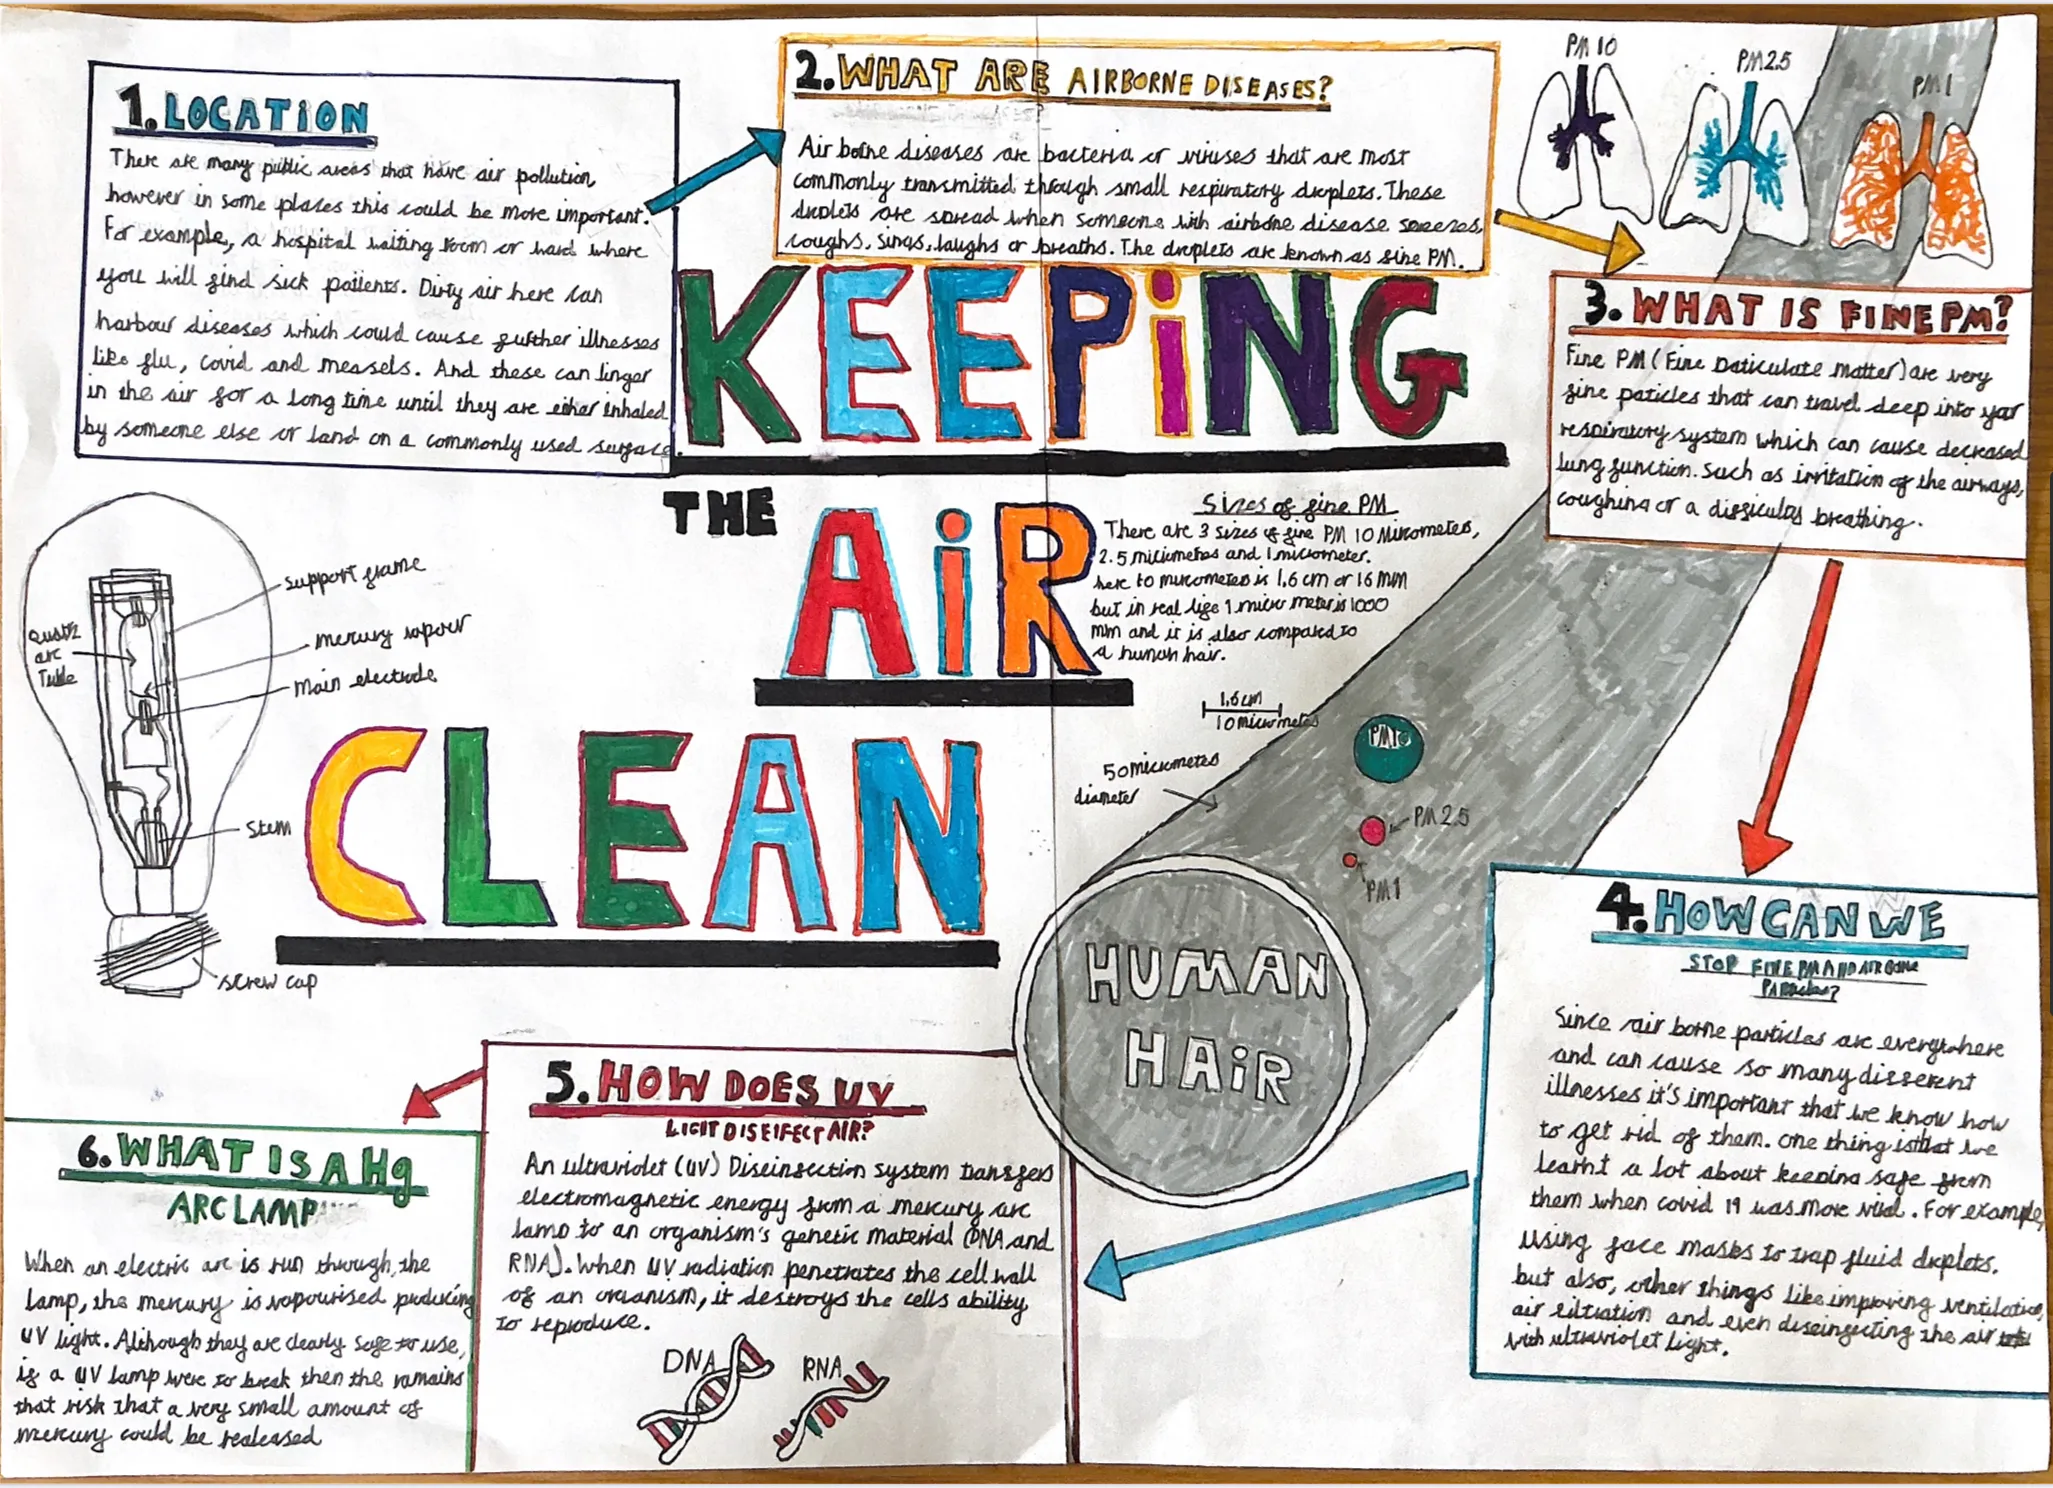 1. LOCATION
There are many public areas that have air pollution
however in some places this could be more important.
For example, a hospital waiting room or ward where
you will find sick patients. Dirty air here can
harbour diseases which could cause further illnesses
like flu, covid and measels. And these can linger
in the air for a long time until they are either inhaled
by someone else or land on a commonly used surface
2. WHAT ARE AIRBORNE DISEASES?
Air borne diseases are bacteria or viruses that are most
commonly transmitted through small respiratory droplets. These
droplets are spread when someone with airbone disease sneezes,
coughs, sings, laughs or breaths. The droplets are known as fine PM.
PM 10
PM2.5
PM1
3. WHAT IS FINE PM?
Fine PM (Fine Paticulate matter) are very
fine paticles that can travel deep into your
respiratory system which can cause decreased
lung function. Such as irritation of the airways,
coughing or a difficulty breathing.
KEEPiNG
THE
AiR
CLEAN
Sizes of fine PM
There are 3 sizes of fine PM 10 Micrometers,
2.5 micrometres and 1 micrometer.
here 10 micrometers is 1.6 cm or 16 mm
but in real life 1 micro meter is 1000
mm and it is also compared to
a human hair.
1.6cm
10 micrometes
50 micrometes
diameter
PM10
PM 2.5
PM1
HUMAN
HAiR
support frame
quartz
arc
Tube
mercury vapour
main electrode
stem
screw cap
4. HOW CAN WE
STOP FINE PM AND AIR BONE
PARticles?
Since air borne particles are everywhere
and can cause so many different
illnesses it's important that we know how
to get rid of them. One thing is that we
learnt a lot about keeping safe from
them when covid 19 was more viral. For example,
using face masks to trap fluid droplets.
but also, other things like improving ventilation,
air filtration and even diseinfecting the air
with ultraviolet light.
5. HOW DOES UV
LIGIT DISEIFECT AIR?
An ultraviolet (UV) Diseinfection system transfers
electromagnetic energy from a mercury arc
lamp to an organism's genetic material (DNA and
RNA). When UV radiation penetrates the cell wall
of an organism, it destroys the cells ability
to reproduce.
DNA
RNA
6. WHAT IS A Hg
ARC LAMP
When an electric arc is run through, the
lamp, the mercury is vapourised producing
UV light. Although they are clearly safe to use,
if a UV lamp were to break then the remains
that risk that a very small amount of
mercury could be realeased